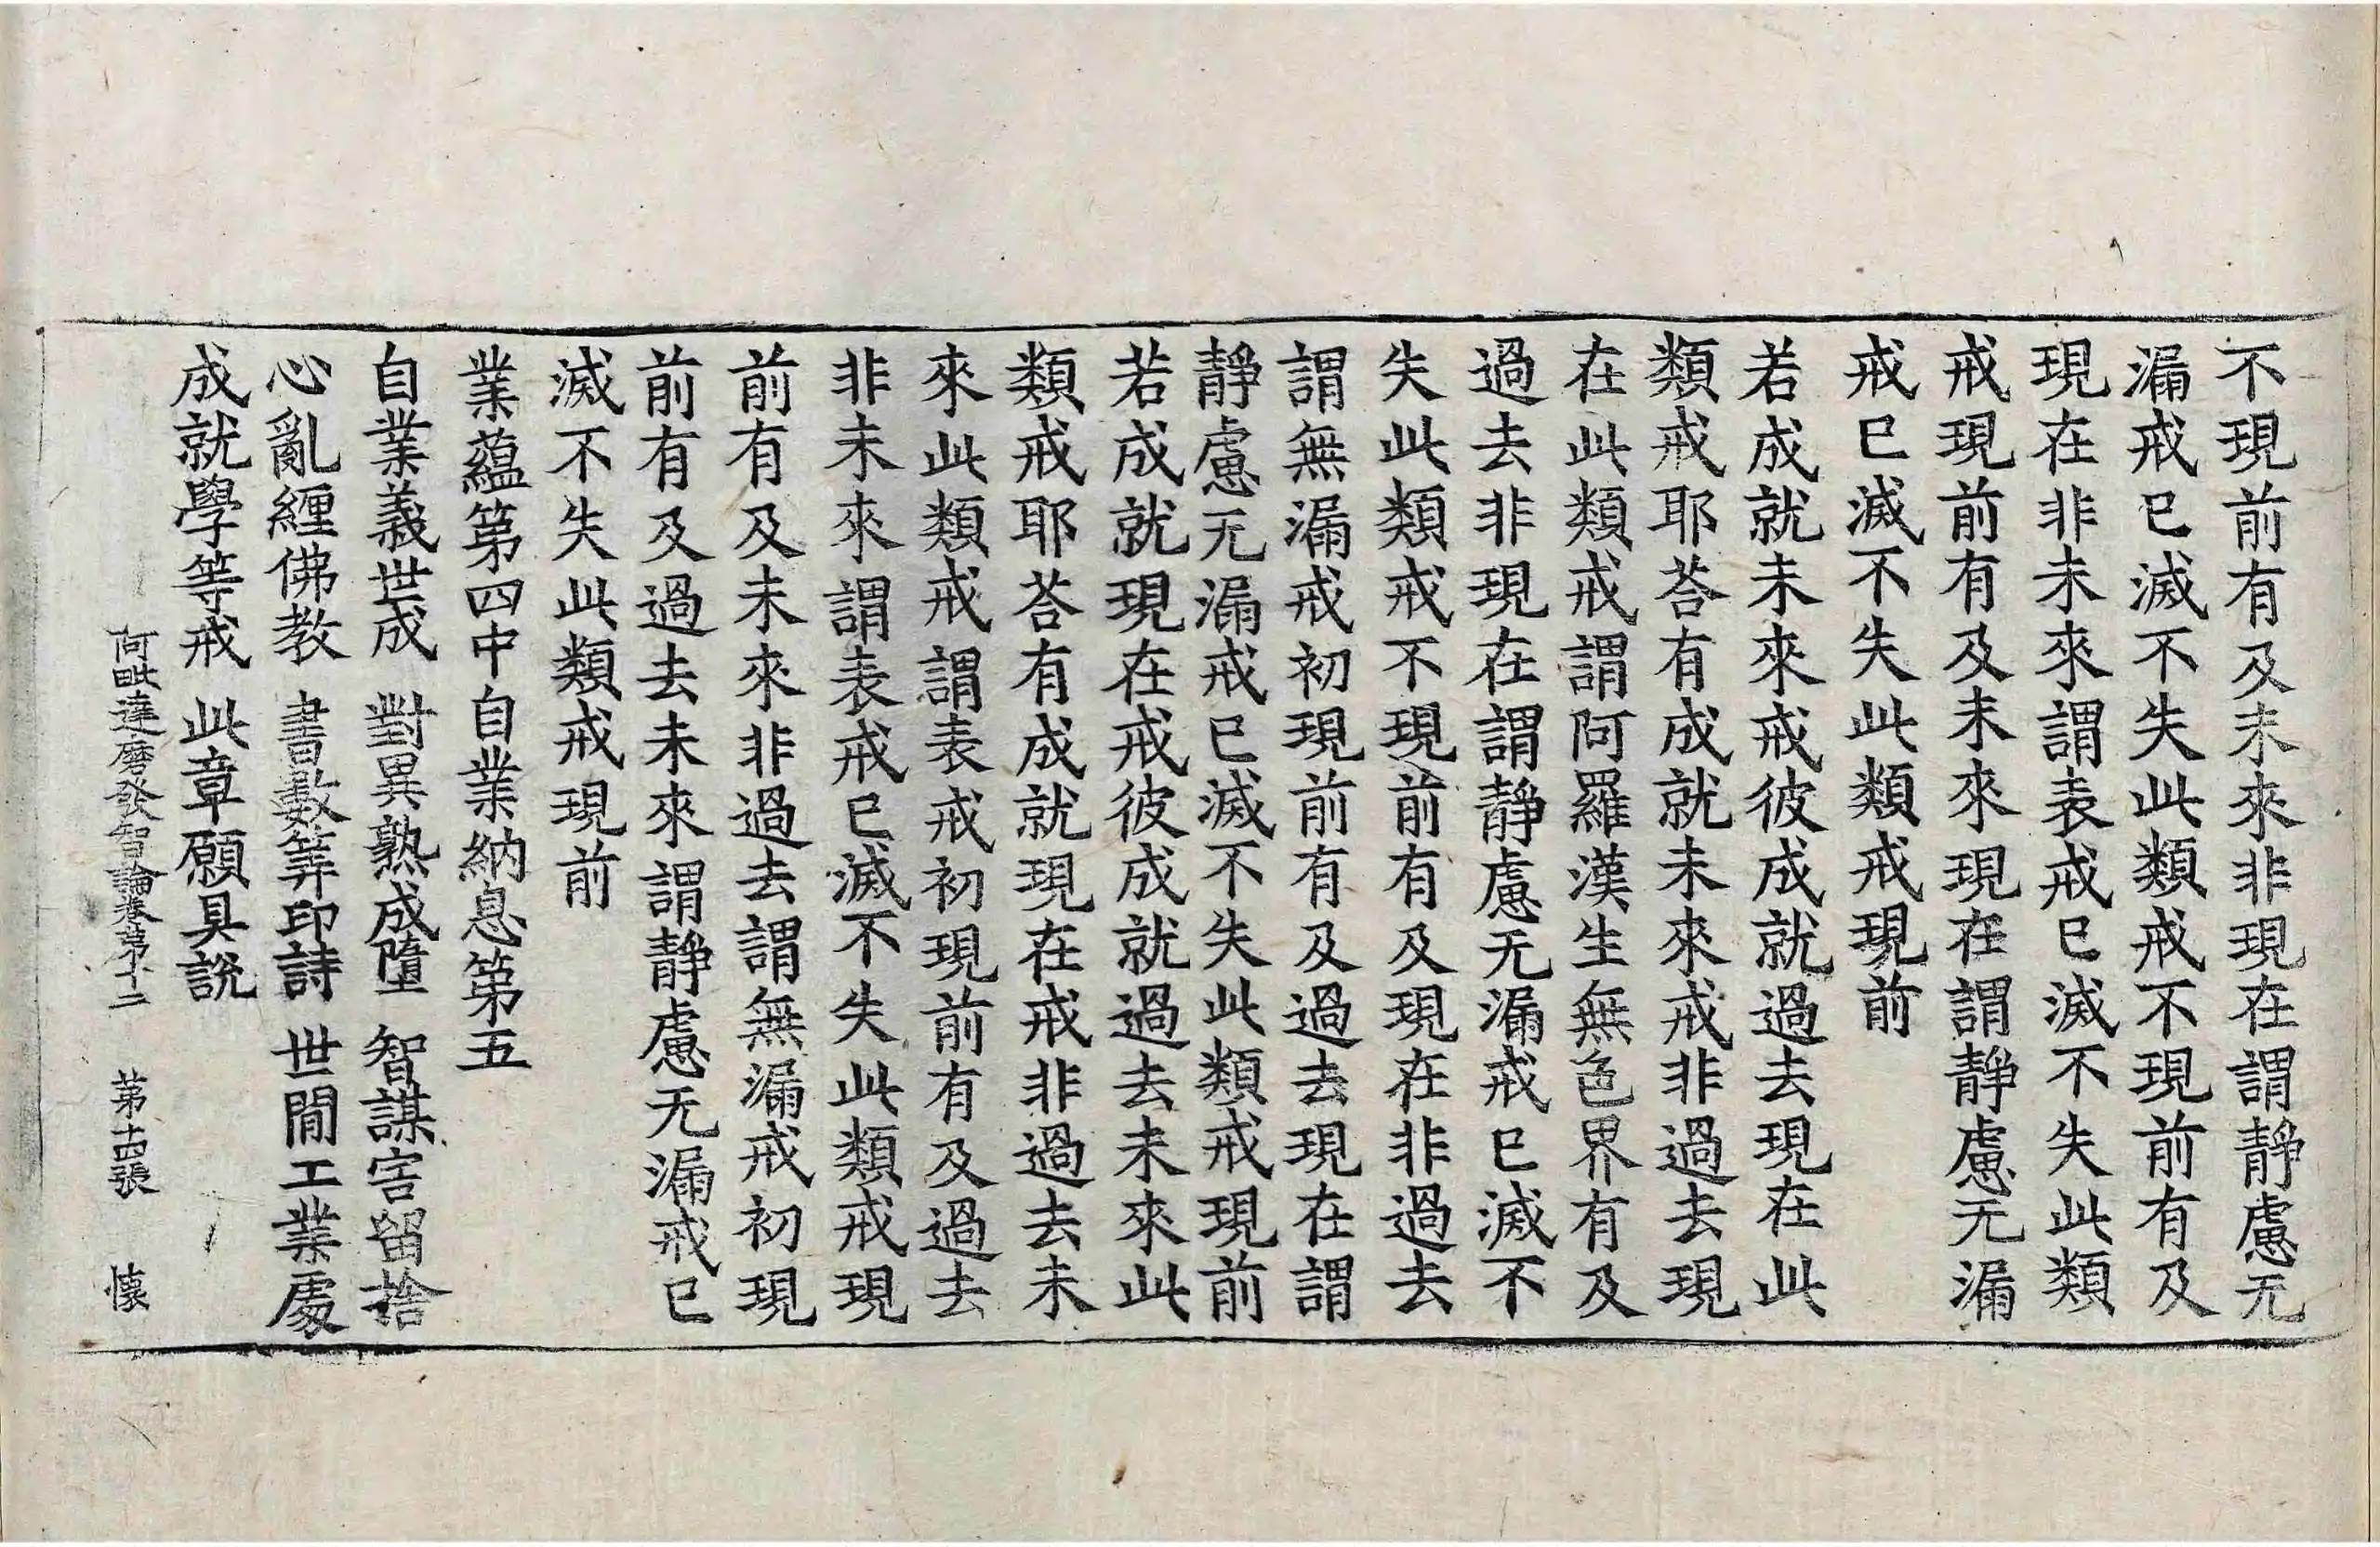 不現前有及未來非現在謂靜慮无
漏戒已滅不失此類戒不現前有及
現在非未來謂表戒已滅不失此類
戒現前有及未來現在謂靜慮无漏
戒已滅不失此類戒現前
若成就未來戒彼成就過去現在此
類戒耶荅有成就未來戒非過去現
在此類戒謂阿羅漢生無色界有及
過去非現在謂靜慮无漏戒已滅不
失此類戒不現前有及現在非過去
謂無漏戒初現前有及過去現在謂
靜慮无漏戒已滅不失此類戒現前
若成就現在戒彼成就過去未來此
類戒耶荅有成就現在戒非過去未
來此類戒謂表戒初現前有及過去
非未來謂表戒已滅不失此類戒現
前有及未來非過去謂無漏戒初現
前有及過去未來謂靜慮无漏戒已
滅不失此類戒現前
業蘊第四中自業納息第五
自業義世成　對異熟成墮　智謀害留捨
心亂纒佛教　書數筭印詩　世間工業處
成就學等戒　此章願具說
阿毗達磨發智論卷第十二　第十四張　懷